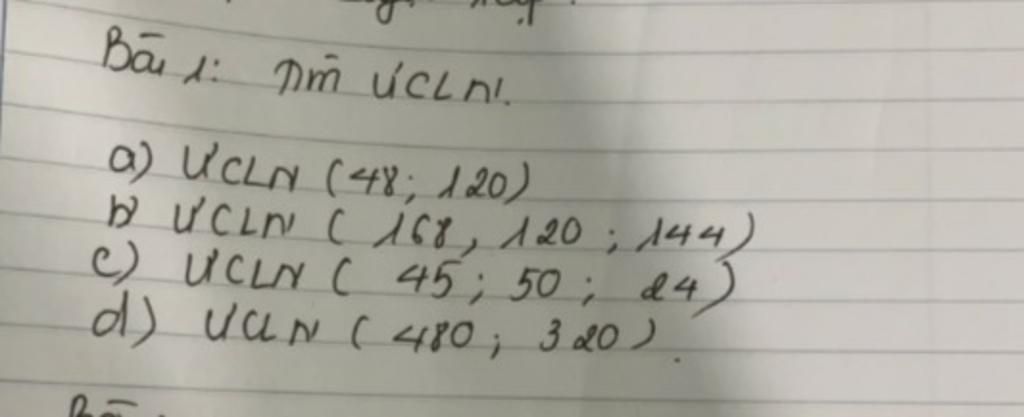 Bài 1: Tìm ƯCLN.
a) ƯCLN (48; 120)
b) ƯCLN ( 168, 120 ; 144)
c) ƯCLN ( 45 ; 50 ; 24)
d) ƯCLN ( 480 ; 320).